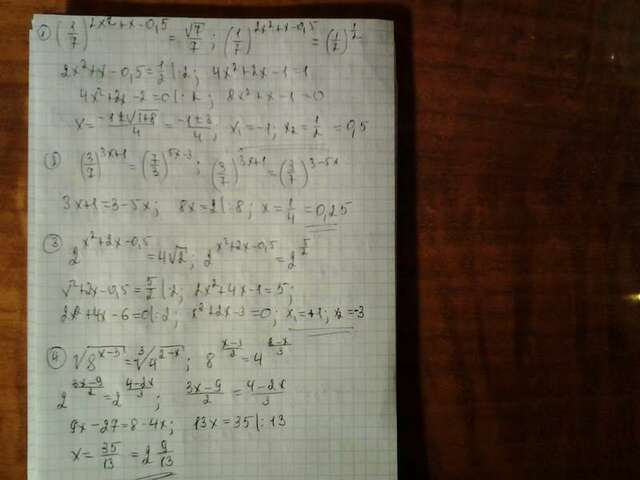 ① (1/7)^(2x²+x-0,5) = √7/7; (1/7)^(2x²+x-0,5) = (1/7)^(1/2)
2x²+x-0,5 = 1/2 |·2; 4x²+2x-1=1
4x²+2x-2=0 |:2; 8x²+x-1=0
x = (-1±√(1+8))/4 = (-1±3)/4; x₁=-1; x₂=1/2=0,5
② (3/7)^(3x+1) = (7/3)^(5x-3); (3/7)^(3x+1) = (3/7)^(3-5x)
3x+1=3-5x; 8x=2 |:8; x=1/4=0,25
③ 2^(x²+2x-0,5) = 4√2; 2^(x²+2x-0,5) = 2^(5/2)
x²+2x-0,5=5/2 |·2; 2x²+4x-1=5;
2x²+4x-6=0 |:2; x²+2x-3=0; x₁=+1; x₂=-3
④ √(8^(x-3)) = ∛(4^(2-x)); 8^((x-3)/2) = 4^((2-x)/3)
2^((3x-9)/2) = 2^((4-2x)/3); (3x-9)/2 = (4-2x)/3
9x-27=8-4x; 13x=35 |:13
x = 35/13 = 2 9/13